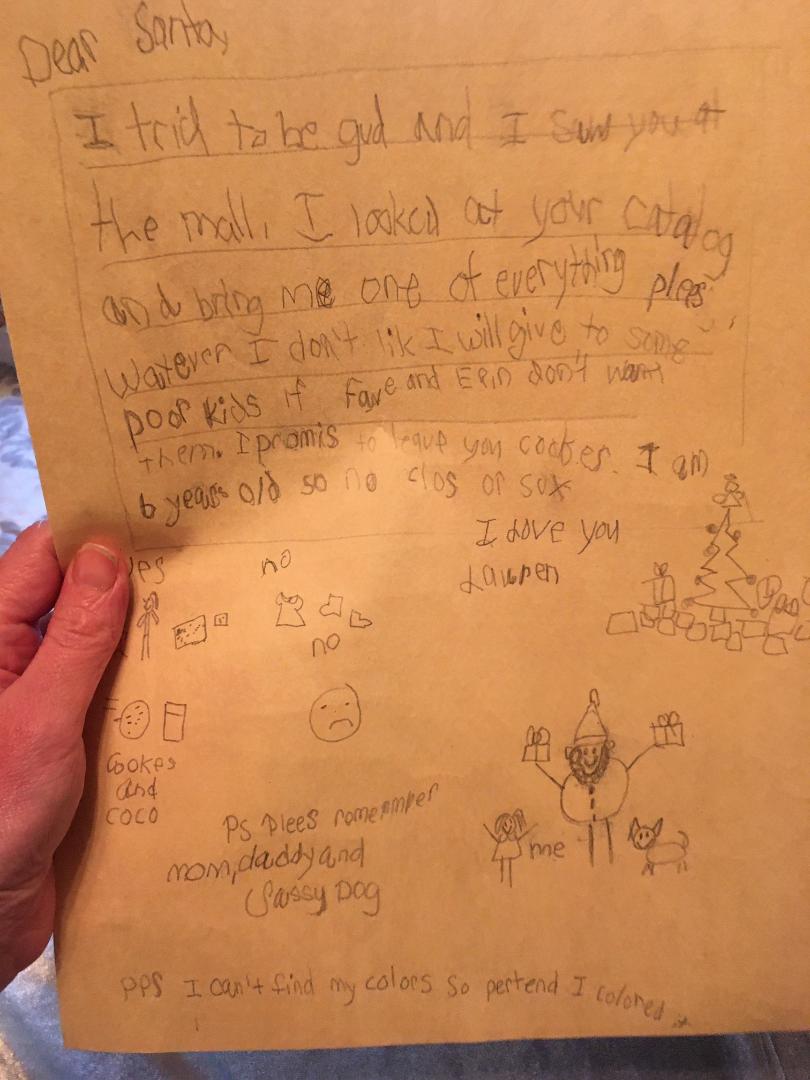 Dear Santa,
I trid to be gud and I saw you at
the mall. I looked at your catalog
and bring me one of everything plees
Watever I don't lik I will give to some
poor kids if Faye and Erin don't want
them. I promis to leave you cookes. I am
6 years old so no clos or sox
I Love you
Lauren
yes
no
no
Cookes
and
coco
me
PS Plees romemmper
mom, daddy and
Sassy Dog
PPS I can't find my colors so pertend I colored it